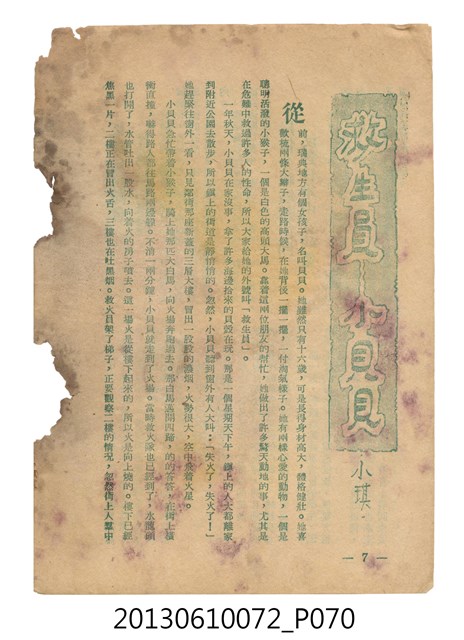 救生員—小貝貝
小琪
從前，瑞典地方有個女孩子，名叫貝貝。她雖然只有十六歲，可是長得身材高大，體格健壯。她喜
歡梳兩條大辮子，走路時候，在她背後一擺一擺，一付淘氣樣子。她有兩樣心愛的動物，一個是
聰明活潑的小猴子，一個是白色的高頭大馬。靠着這兩位朋友的幫忙，她做出了許多驚天動地的事，尤其是
在危難中救過許多人的性命，所以大家給她的外號叫「救生員」。
一年秋天，小貝貝在家沒事，拿了許多海邊拾來的貝殼在玩。那是一個星期天下午，鎮上的人大都離家
到附近公園去散步，所以鎮上的街道是靜悄悄的。忽然，小貝貝聽到窗外有人大叫：「失火了！失火了！」
她趕緊往街外一看，只見鄰街那座嶄新的三層大樓，冒出一股股的濃煙，火勢很大，空中飛着火星。
小貝貝急忙帶着小猴子，騎上她那匹大白馬，向火場奔跑過去。那白馬跑開四蹄，的的答答，在街上橫
衝直撞，嚇得路人都往馬路兩邊躲。不消一兩分鐘，小貝貝就走到了火場。當時救火隊也已經到了，水龍頭
也打開了，水管吐出一股水，向着火的房子噴去。這一場火是從樓下起來的，所以火是向上燒的。樓下已經
焦黑一片，二樓正在冒出火舌，三樓也在吐黑烟。救火員架了梯子，正要觀察二樓的情況，忽然街上人羣中
— 7 —
20130610072_P070